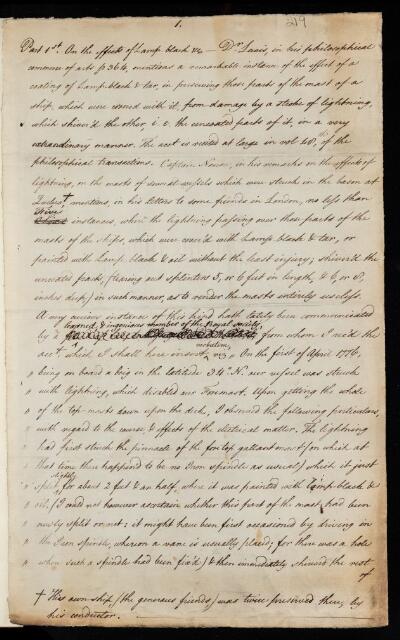 1.
219
Part 1st. On the effects of Lamp-black &c — Dr. Lewis, in his philosophical
commerce of arts p 364, mentions a remarkable instance of the effect of a
coating of Lamp-black & tar, in preserving those parts of the mast of a
ship, which were cover'd with it, from damage by a stroke of lightning,
which shiver'd the other i.e. the uncoated parts of it, in a very
extraordinary manner. The acct. is recited at large in vol 48th, of the
philosophical transactions. Captain in his remarks on the effects of
lightning, on the masts of several vessels which were struck in the bason at
mentions, in his letters to some friends in London, no less than
three
instances, where the lightning passing over those parts of the
masts of the ships, which were cover'd with Lamp black & tar, or
painted with Lamp black & oil without the least injury; shiver'd the
uncoated parts, (tearing out splinters 5, or 6 feet in length, & 6, or 8,
inches deep) in such manner, as to render the masts entirely useless.
A very curious instance of this kind hath lately been communicated
learned & ingenious member of the Royal society
by a from whom I rec'd the
verbatim,
acct. which I shall here insert viz. " On the first of April 1776,
" being on board a brig in the latitude 34° N. our vessel was struck
" with lightning, which disabled our Foremast. Upon getting the whole
" of the top-masts down upon the deck, I observed the following particulars,
" with regard to the course & effects of the electrical matter. The lightning
" had first struck the pinnacle of the foretop gallant mast (on which at
" that time there happened to be no Iron spindle as usual) which it just
slightly
" split, for about 2 feet & an half, where it was painted with Lamp-black &
" oil. (I could not however ascertain whether this part of the mast had been
" newly split or not: it might have been first occasioned by driving in
" the Iron spindle, whereon a vane is usually placed; for there was a hole
" where such a spindle had been fixed) & then immediately shiver'd the rest
of
+ His own ship, (the generous friends) was twice preserved there, by
his conductor.